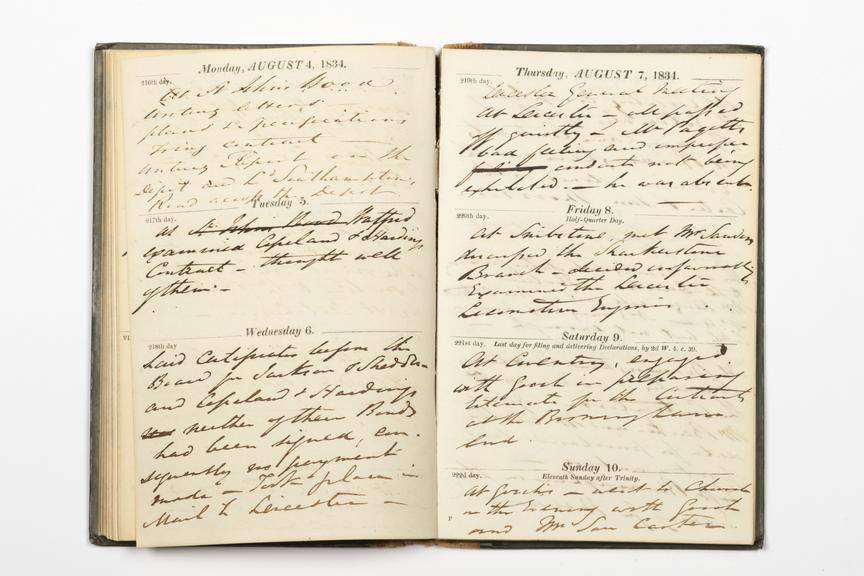 Monday, AUGUST 4, 1834.
216th day.
At St Johns Wood
writing letters
plans & specifications
contract
writing Report on the
Depot and Ld Southampton's
Road across the Depot
Tuesday 5.
217th day.
At St Johns Wood Watford
examined Copeland & Hardings
Contract – thought well
of them –
Wednesday 6.
218th day
Laid Certificates before the
Board for Jackson & Shedden
and Copeland & Hardings
neither of their Bonds
had been signed, con-
sequently no payment
made – Took place in
Mail to Leicester –
Thursday, AUGUST 7, 1834.
219th day.
Leicester General Meeting
At Leicester – All passed
off quietly – Mr Pagetts
bad feeling and improper
conduct not being
exhibited. – he was absent
Friday 8.
220th day.
Half-Quarter Day.
At Snibston, met Mr Sanders
the
Branch – decided unfavorably
Examined the Leicester
Locomotive Engines
Saturday 9.
221st day.
Last day for filing and delivering Declarations, by 2d W. 4, c. 39.
At Coventry, engaged
with Gooch in preparing
Estimate for the Contracts
at the Birmingham
End
Sunday 10.
222d day.
Eleventh Sunday after Trinity.
At – went to Church
in the Evening with Gooch
and Mr